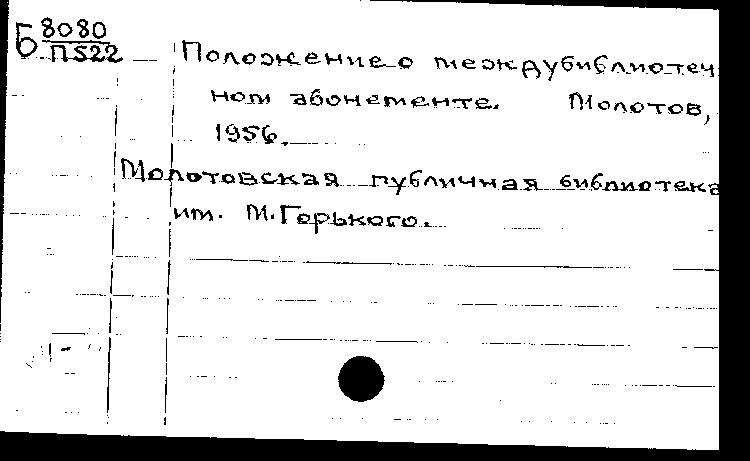 Б 8080
П522
Положение о междубиблиотеч
ном абонементе. Молотов,
1956.
Молотовская публичная библиотека
им. М. Горького.